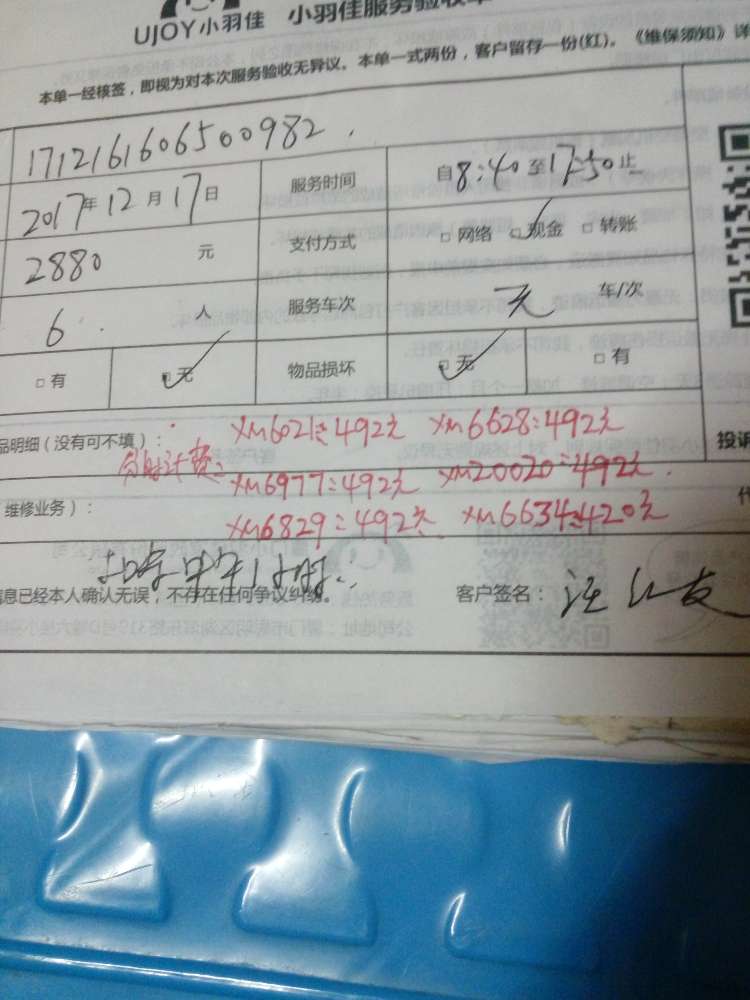 UJOY小羽佳 小羽佳服务验收单
本单一经核签，即视为对本次服务验收无异议。本单一式两份，客户留存一份(红)。《维保须知》详
1712161606500982
服务时间 自8:40至17:50止
2017年12月17日
2880 元 支付方式 □ 网络 ☑现金 □ 转账
6 人 服务车次 无 车/次
□ 有 ☑无 物品损坏 ☑无 □ 有
品明细（没有可不填）： XM6021:492元 XM6628:492元
分时计费: XM6977:492元 XM20020:492元
维修业务）： XM6829:492元 XM6634:420元
投诉
代
扣除中午1小时
信息已经本人确认无误，不存在任何争议纠纷。 客户签名：